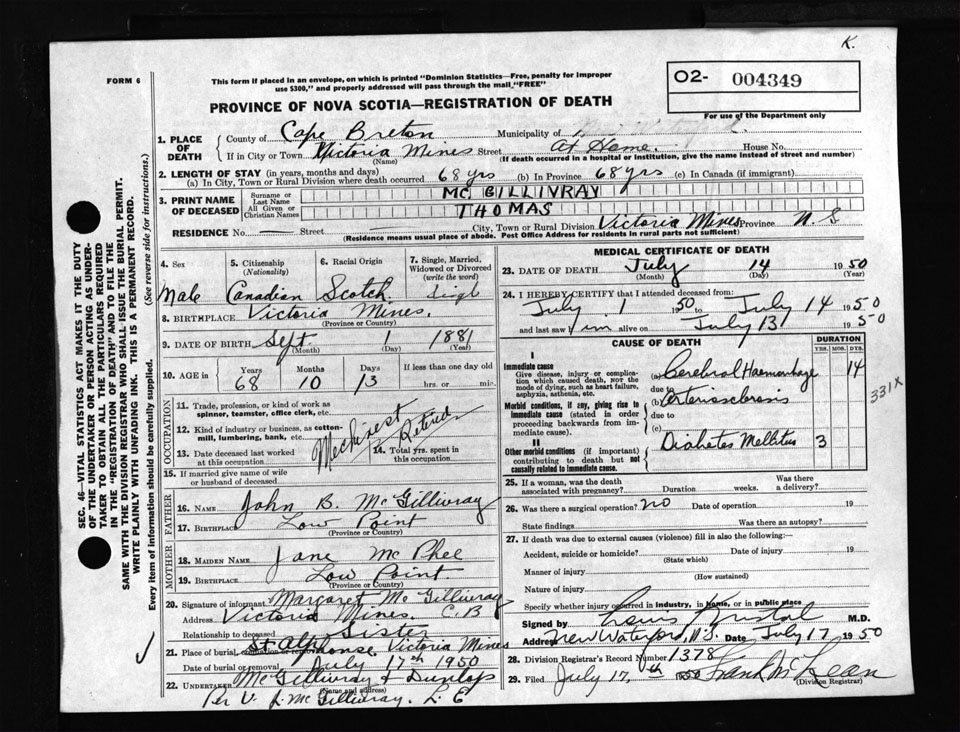 K.
FORM 6
This form if placed in an envelope, on which is printed "Dominion Statistics—Free, penalty for improper
use $300," and properly addressed will pass through the mail "FREE"
PROVINCE OF NOVA SCOTIA—REGISTRATION OF DEATH
02- 004349
For use of the Department only
1. PLACE OF DEATH
County of Cape Breton Municipality of
If in City or Town Victoria Mines Street At Home. House No.
(Name) (If death occurred in a hospital or institution, give the name instead of street and number)
2. LENGTH OF STAY (in years, months and days)
(a) In City, Town or Rural Division where death occurred 68 yrs (b) In Province 68 yrs (c) In Canada (if immigrant)
3. PRINT NAME OF DECEASED
Surname or Last Name MC GILLIVRAY
All Given or Christian Names THOMAS
RESIDENCE No. — Street — City, Town or Rural Division Victoria Mines Province N. S
(Residence means usual place of abode. Post Office Address for residents in rural parts not sufficient)
4. Sex
5. Citizenship
(Nationality)
6. Racial Origin
7. Single, Married,
Widowed or Divorced
(write the word)
Male Canadian Scotch. Singl
8. BIRTHPLACE Victoria Mines.
(Province or Country)
9. DATE OF BIRTH Sept. 1 1881
(Month) (Day) (Year)
10. AGE in Years Months Days If less than one day old
68 10 13 hrs. or min.
OCCUPATION
11. Trade, profession, or kind of work as
spinner, teamster, office clerk, etc.
12. Kind of industry or business, as cotton-
mill, lumbering, bank, etc.
13. Date deceased last worked
at this occupation
14. Total yrs. spent in
this occupation
Retired
15. If married give name of wife
or husband of deceased
FATHER
16. Name John B. McGillivray
17. Birthplace Low Point
(Province or Country)
MOTHER
18. MAIDEN NAME Jane McPhee
19. BIRTHPLACE Low Point.
(Province or Country)
20. Signature of informant Margaret McGillivray
Address Victoria Mines. C.B
Relationship to deceased Sister
21. Place of burial, cremation or removal St Alphonse, Victoria Mines
Date of burial or removal July 17th 1950
22. UNDERTAKER McGillivray & Dunlop
(Name and address)
Per V. J. McGillivray. L. E
MEDICAL CERTIFICATE OF DEATH
23. DATE OF DEATH July 14 1950
(Month) (Day) (Year)
24. I HEREBY CERTIFY that I attended deceased from
July 1 50 to July 14 1950
and last saw him alive on July 13 1950
CAUSE OF DEATH
DURATION
YRS. MOS. DYS.
I
Immediate cause
Give disease, injury or complica-
tion which caused death, NOT the
mode of dying, such as heart failure,
asphyxia, asthenia, etc.
(a) Cerebral Haemorrhage 14
due to
Morbid conditions, if any, giving rise to
immediate cause (stated in order
proceeding backwards from im-
mediate cause).
(b) Arteriosclerosis
due to
(c)
331X
II
Other morbid conditions (if important)
contributing to death but not
causally related to immediate cause.
Diabetes Mellitus 3
25. If a woman, was the death
associated with pregnancy? Duration weeks. Was there
a delivery?
26. Was there a surgical operation? no Date of operation 19
State findings Was there an autopsy?
27. If death was due to external causes (violence) fill in also the following:—
Accident, suicide or homicide? Date of injury 19
(State which)
Manner of injury
(How sustained)
Nature of injury
Specify whether injury occurred in Industry, in Home, or in public place
Signed by M.D.
Address New Waterford, N.S. Date July 17 1950
28. Division Registrar's Record Number 1378
29. Filed July 17th 1950
(Division Registrar)
SEC. 46—VITAL STATISTICS ACT MAKES IT THE DUTY
OF THE UNDERTAKER OR PERSON ACTING AS UNDER-
TAKER TO OBTAIN ALL THE PARTICULARS REQUIRED
IN THE "REGISTRATION OF DEATH" AND TO FILE THE
SAME WITH THE DIVISION REGISTRAR WHO SHALL ISSUE THE BURIAL PERMIT.
WRITE PLAINLY WITH UNFADING INK. THIS IS A PERMANENT RECORD.
Every item of information should be carefully supplied. (See reverse side for instructions.)